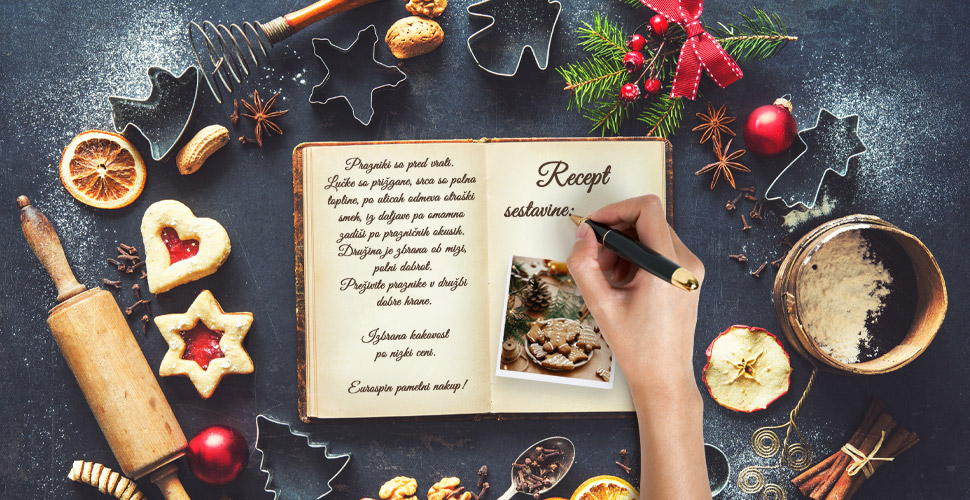 Prazniki so pred vrati.
Lučke so prižgane, srca so polna
topline, po ulicah odmeva otroški
smeh, iz daljave pa omamno
zadiši po prazničnih okusih.
Družina je zbrana ob mizi,
polni dobrot.
Preživite praznike v družbi
dobre hrane.
Izbrana kakovost
po nizki ceni.
Eurospin pametni nakup!
Recept
sestavine: